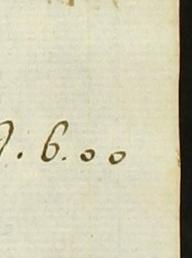 . 6. 00